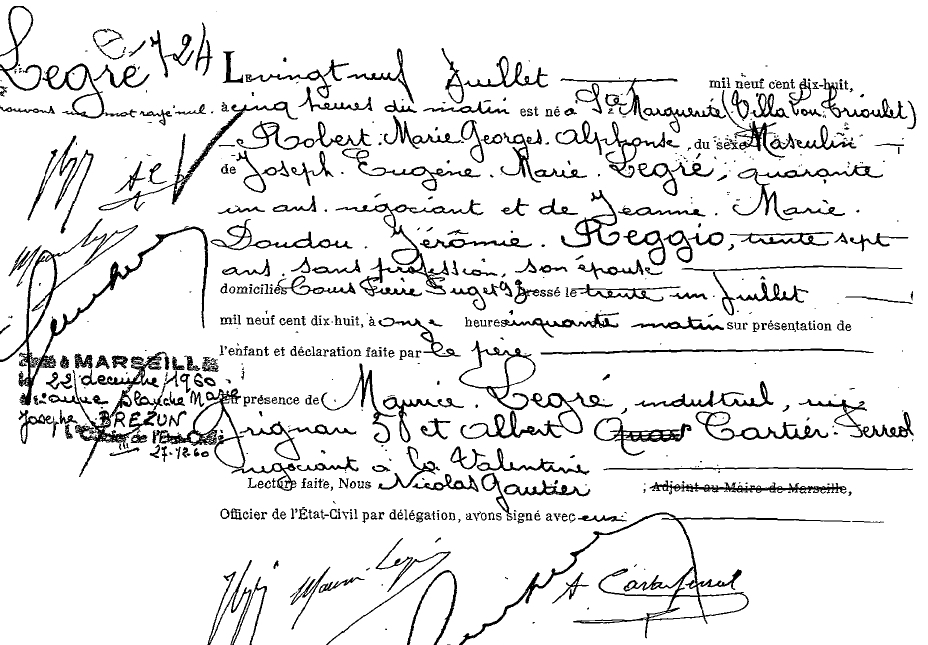 Legré 724
Le vingt neuf Juillet mil neuf cent dix-huit,
rouvons un mot rayé nul. à cinq heures du matin est né à Ste Marguerite (Villa Lou Trioulet)
Robert. Marie. Georges. Alphonse, du sexe Masculin
de Joseph. Eugène. Marie. Legré, quarante
un ans. négociant et de Jeanne. Marie.
Doudou. Jérômie. Reggio, trente sept
ans. sans profession, son épouse
domiciliés Cours Pierre Puget 98 ressé le trente un Juillet
mil neuf cent dix-huit, à onze heures cinquante matin sur présentation de
l'enfant et déclaration faite par le père
En présence de Maurice. Legré, industriel, rue
Grignan 38 et Albert Cartier. Ferreol
négociant à la Valentine
Lecture faite, Nous Nicolas Gautier ; Adjoint au Maire de Marseille,
Officier de l'État-Civil par délégation, avons signé avec eux
à MARSEILLE
le 22 decembre 1960
Blanche Marie
Josephe BREZUN
l'Officier de l'Etat-Civil
27-12-60